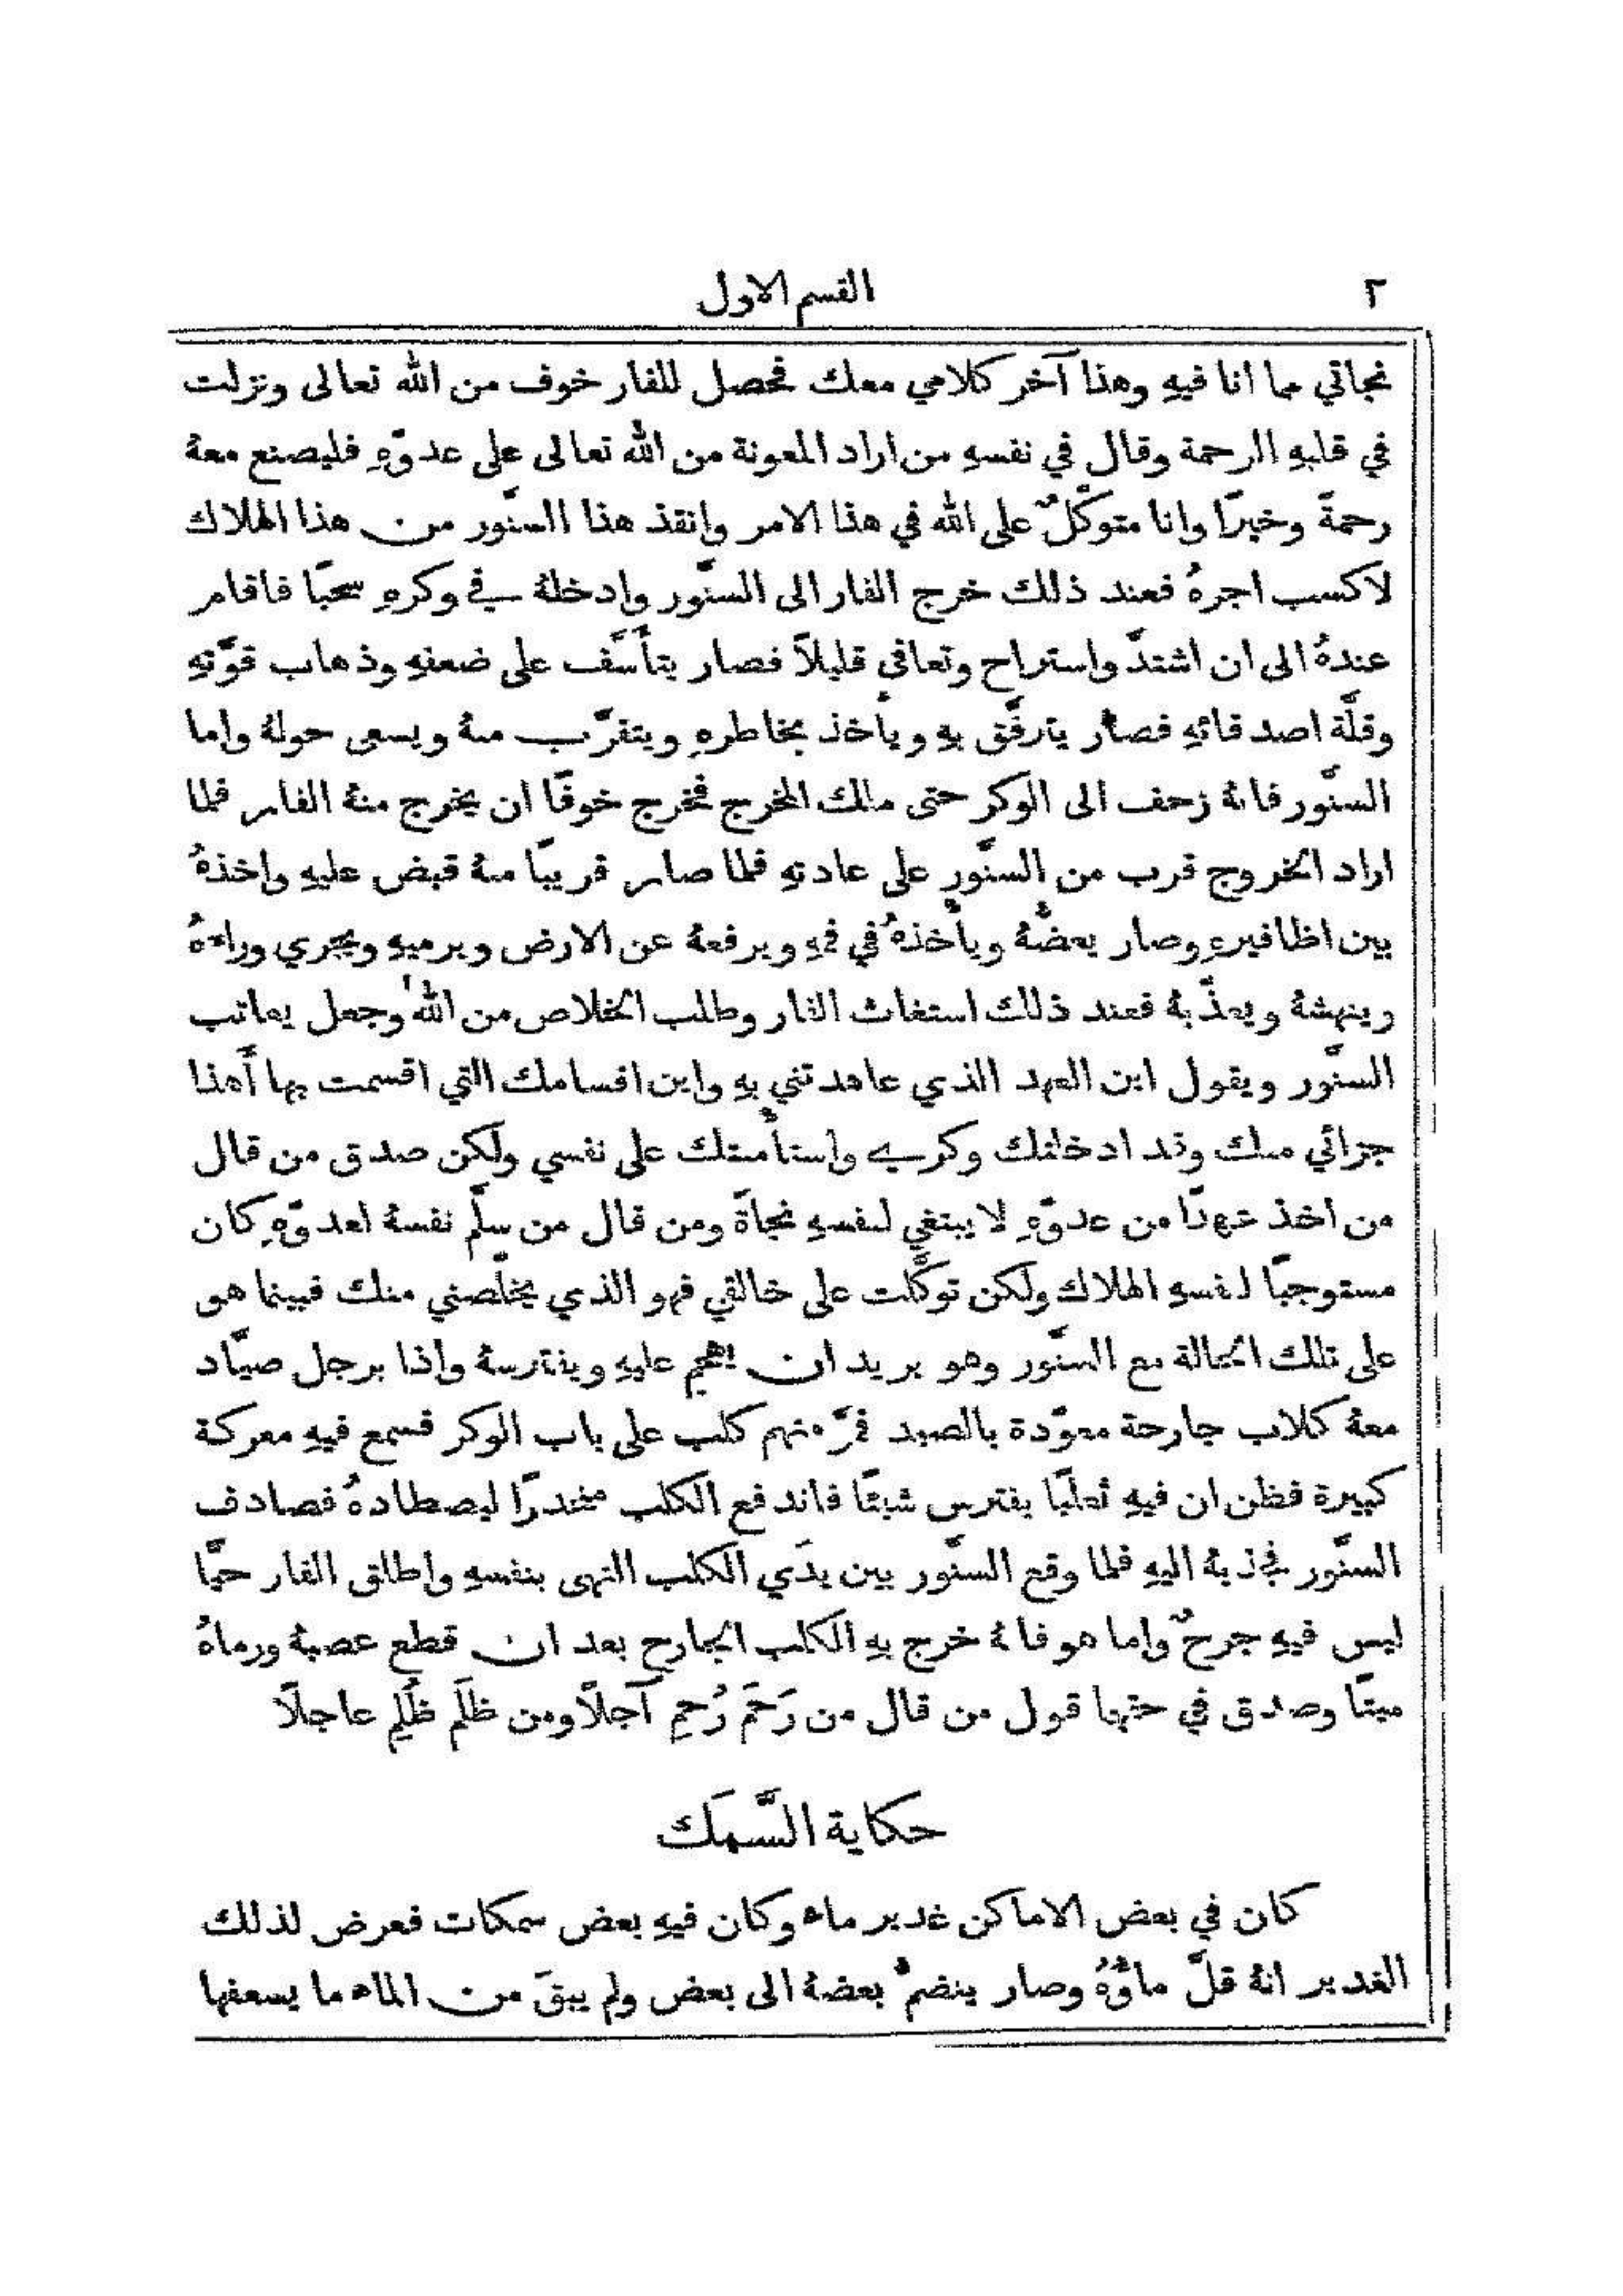 ٢ القسم الاول
نجاتي مما انا فيهِ وهذا آخر كلامي معك فحصل للفار خوف من الله تعالى ونزلت
في قلبهِ الرحمة وقال في نفسهِ من اراد المعونة من الله تعالى على عدوّهِ فليصنع معهُ
رحمةً وخيرًا وانا متوكّلٌ على الله في هذا الامر وانقذ هذا السنّور من هذا الهلاك
لاكسب اجرهُ فعند ذلك خرج الفار الى السنّور وادخلهُ في وكرهِ سحبًا فاقام
عندهُ الى ان اشتدّ واستراح وتعافى قليلاً فصار يتأسَّف على ضعفهِ وذهاب قوّتهِ
وقلّة اصدقائهِ فصار يترفّق بهِ ويأخذ بخاطرهِ ويتقرّب منهُ ويسعى حولهُ واما
السنّور فانهُ زحف الى الوكر حتى ملك المخرج فخرج خوفًا ان يخرج منهُ الفار فلما
اراد الخروج قرب من السنّور على عادتهِ فلما صار قريبًا منهُ قبض عليهِ واخذهُ
بين اظافيرهِ وصار يعضّهُ ويأخذهُ في فمهِ ويرفعهُ عن الارض ويرميهِ ويجري وراءهُ
وينهشهُ ويعذّبهُ فعند ذلك استغاث الفار وطلب الخلاص من الله وجعل يعاتب
السنّور ويقول اين العهد الذي عاهدتني بهِ واين اقسامك التي اقسمت بها أَهذا
جزائي منك وقد ادخلتك وكري واستأمنتك على نفسي ولكن صدق من قال
من اخذ عهدًا من عدوّهِ لا يبتغي لنفسهِ نجاةً ومن قال من سلّم نفسهُ لعدوّهِ كان
مستوجبًا لنفسهِ الهلاك ولكن توكّلت على خالقي فهو الذي يخلّصني منك فبينما هو
على تلك الحالة مع السنّور وهو يريد ان يهجم عليهِ ويفترسهُ واذا برجل صيّاد
معهُ كلاب جارحة معوّدة بالصيد فمرّ منهم كلب على باب الوكر فسمع فيهِ معركة
كبيرة فظن ان فيهِ ثعلبًا يفترس شيئًا فاندفع الكلب منحدرًا ليصطادهُ فصادف
السنّور فجذبهُ اليهِ فلما وقع السنّور بين يدَي الكلب التهى بنفسهِ واطلق الفار حيًّا
ليس فيهِ جرحٌ واما هو فانهُ خرج بهِ الكلب الجارح بعد ان قطع عصبهُ ورماهُ
ميتًا وصدق في حقهما قول من قال من رَحَمَ رُحِمِ آجلًا ومن ظلَم ظُلِمِ عاجلًا
حكاية السَّمَك
كان في بعض الاماكن غدير ماء وكان فيهِ بعض سمكات فعرض لذلك
الغدير انهُ قلّ ماؤُهُ وصار ينضمّ بعضهُ الى بعض ولم يبقَ من الماء ما يسعفها